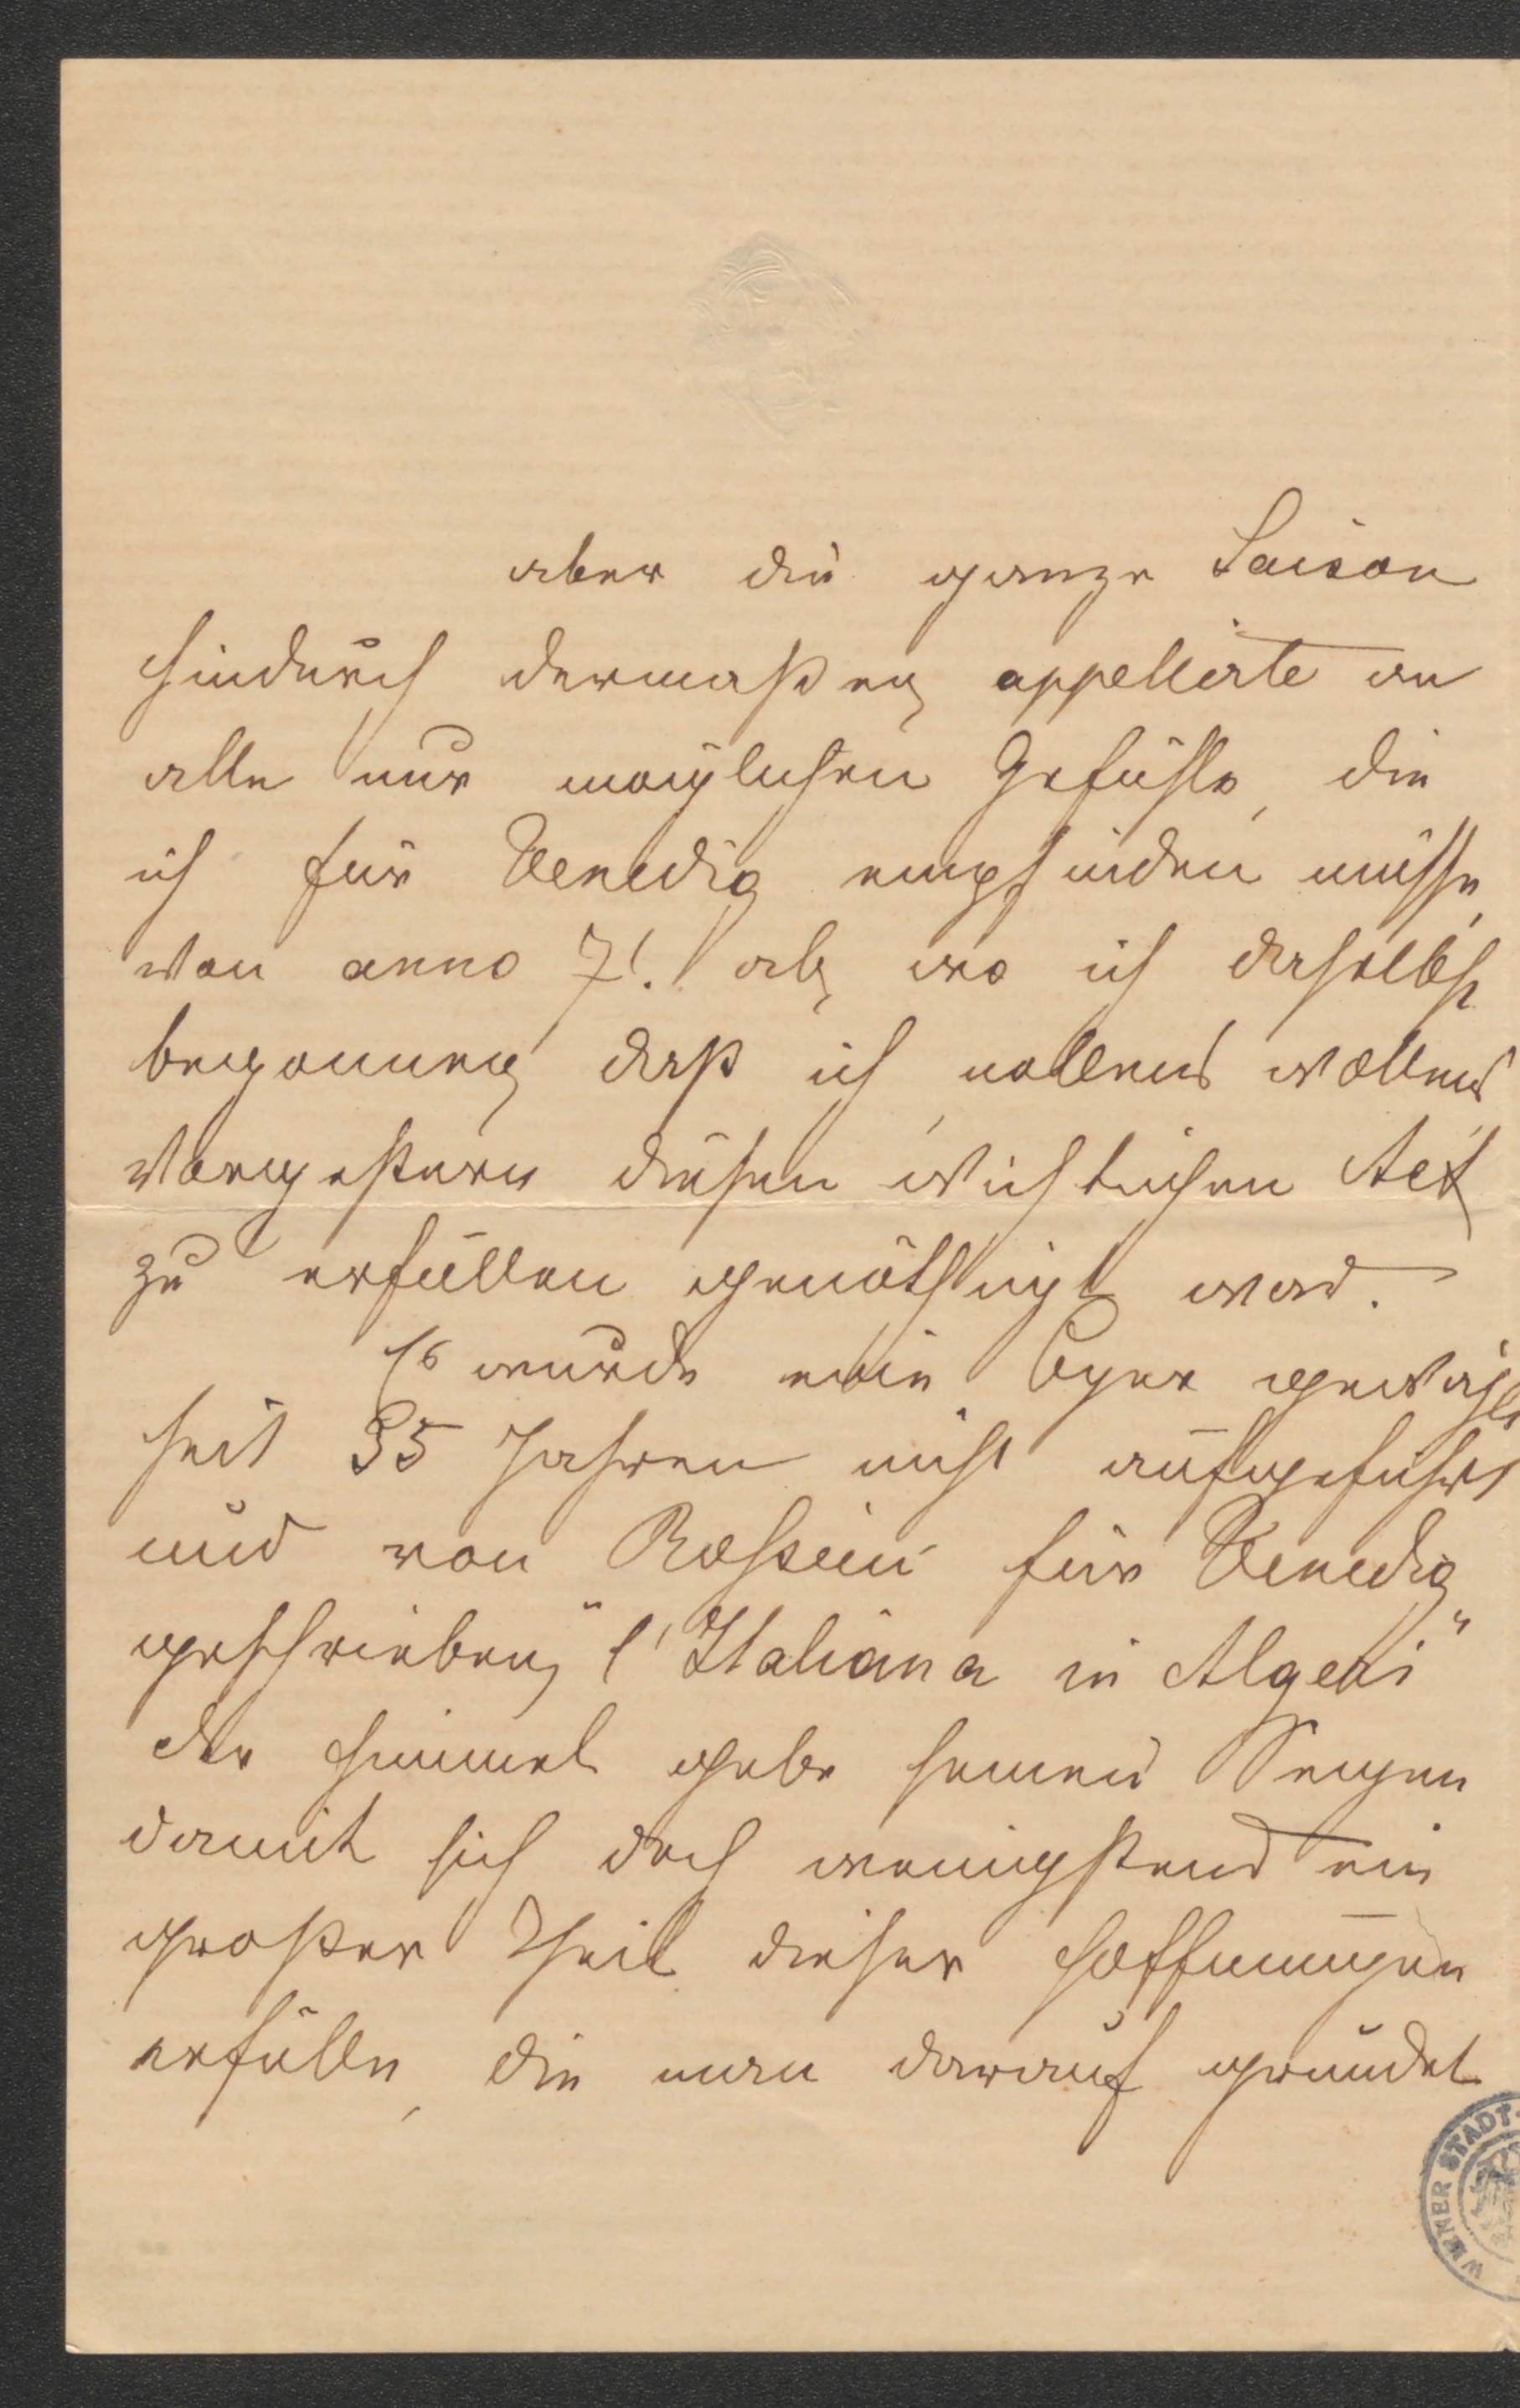 aber die ganze Saison
hindurch dermaßen appellirte an
alle nur möglichen Gefühle, die
ich für Venedig empfinden müsse,
von anno 71. ab, wo ich daselbst
begonnen, daß ich, nollens vollens
vorgestern diesen wichtichen Act
zu erfüllen genöthigt ward.
Es wurde eine Oper gewählt
seit 35 Jahren nicht aufgeführt
und von Rossini für Venedig
geschrieben, "l'Italiana in Algeri"
der Himmel gebe seinen Segen
damit sich doch wenigstens ein
großer Theil dieser Hoffnungen
erfülle, die man darauf gründet
WIENER STADT-